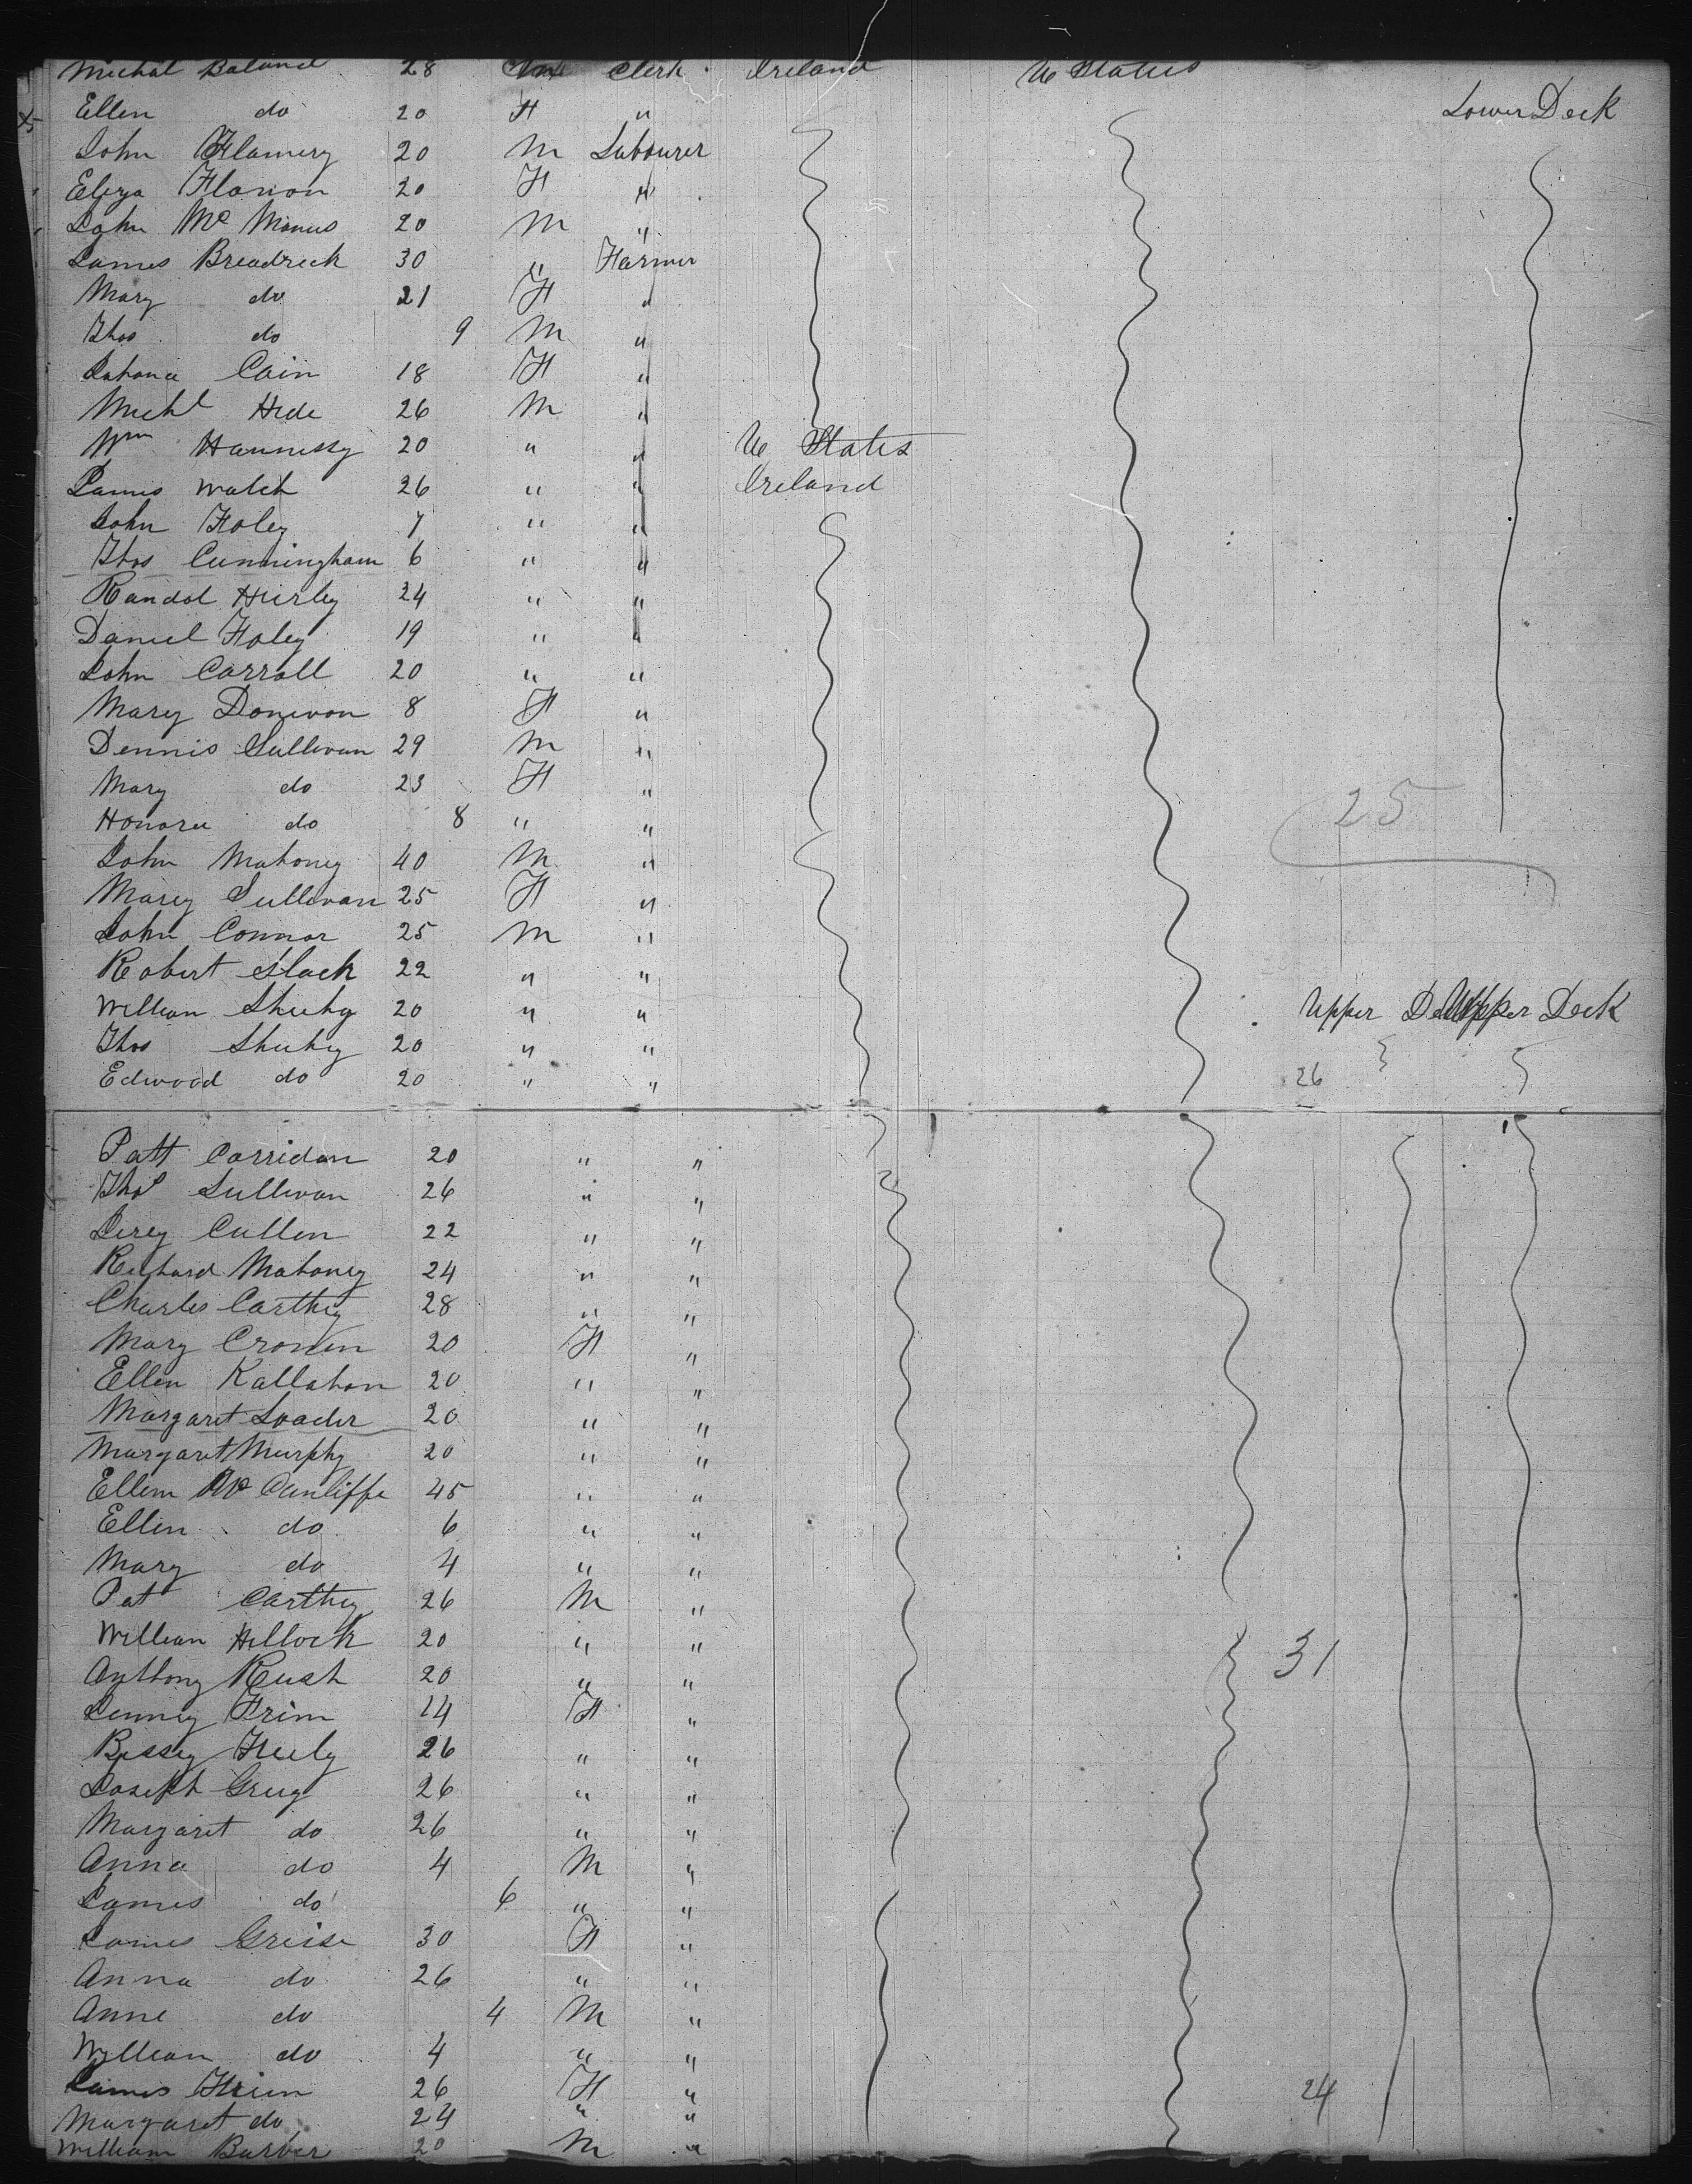 Michal Boland 28 M Clerk Ireland U States
Ellen do 20 F " Lower Deck
John Flamery 20 M Labourer
Eliza Flanon 20 F "
John Mc Manus 20 M "
James Breadreck 30 " Farmer
Mary do 21 F "
Thos do 9 M "
Johana Cain 18 F "
Michl Hide 26 M "
Wm Hannessy 20 " " U States
James Walch 26 " " Ireland
John Foley 7 " "
Thos Cunningham 6 " "
Randol Hurley 24 " "
Daniel Foley 19 " "
John Carroll 20 " "
Mary Donevon 8 F "
Dennis Sullivan 29 M "
Mary do 23 F " 25
Honora do 8 " "
John Mahoney 40 M "
Marey Sullivan 25 F "
John Connor 25 M "
Robert Slack 22 " "
William Shuhy 20 " " Upper Deck Upper Deck
Thos Shuhy 20 " "
Edwood do 20 " " 26
Patt Corridan 20 " "
Thos Sullivan 26 " "
Jerey Cullen 22 " "
Richard Mahoney 24 " "
Charles Carthy 28 " "
Mary Cronen 20 F "
Ellen Kallahan 20 " "
Margaret Loader 20 " "
Margaret Murphy 20 " "
Ellen Mc Canliffe 45 " "
Ellen do 6 " "
Mary do 4 " "
Pat Carthy 26 M "
William Hillock 20 " " 31
Anthony Rush 20 " "
Jenney Frim 14 F "
Bessey Feely 26 " "
Joseph Greig 26 " "
Margaret do 26 " "
Anna do 4 M "
James do 6 " "
James Greise 30 F "
Anna do 26 " "
Anne do 4 M "
William do 4 " "
James Frim 26 F " 24
Margaret do 24 " "
William Barber 20 M "